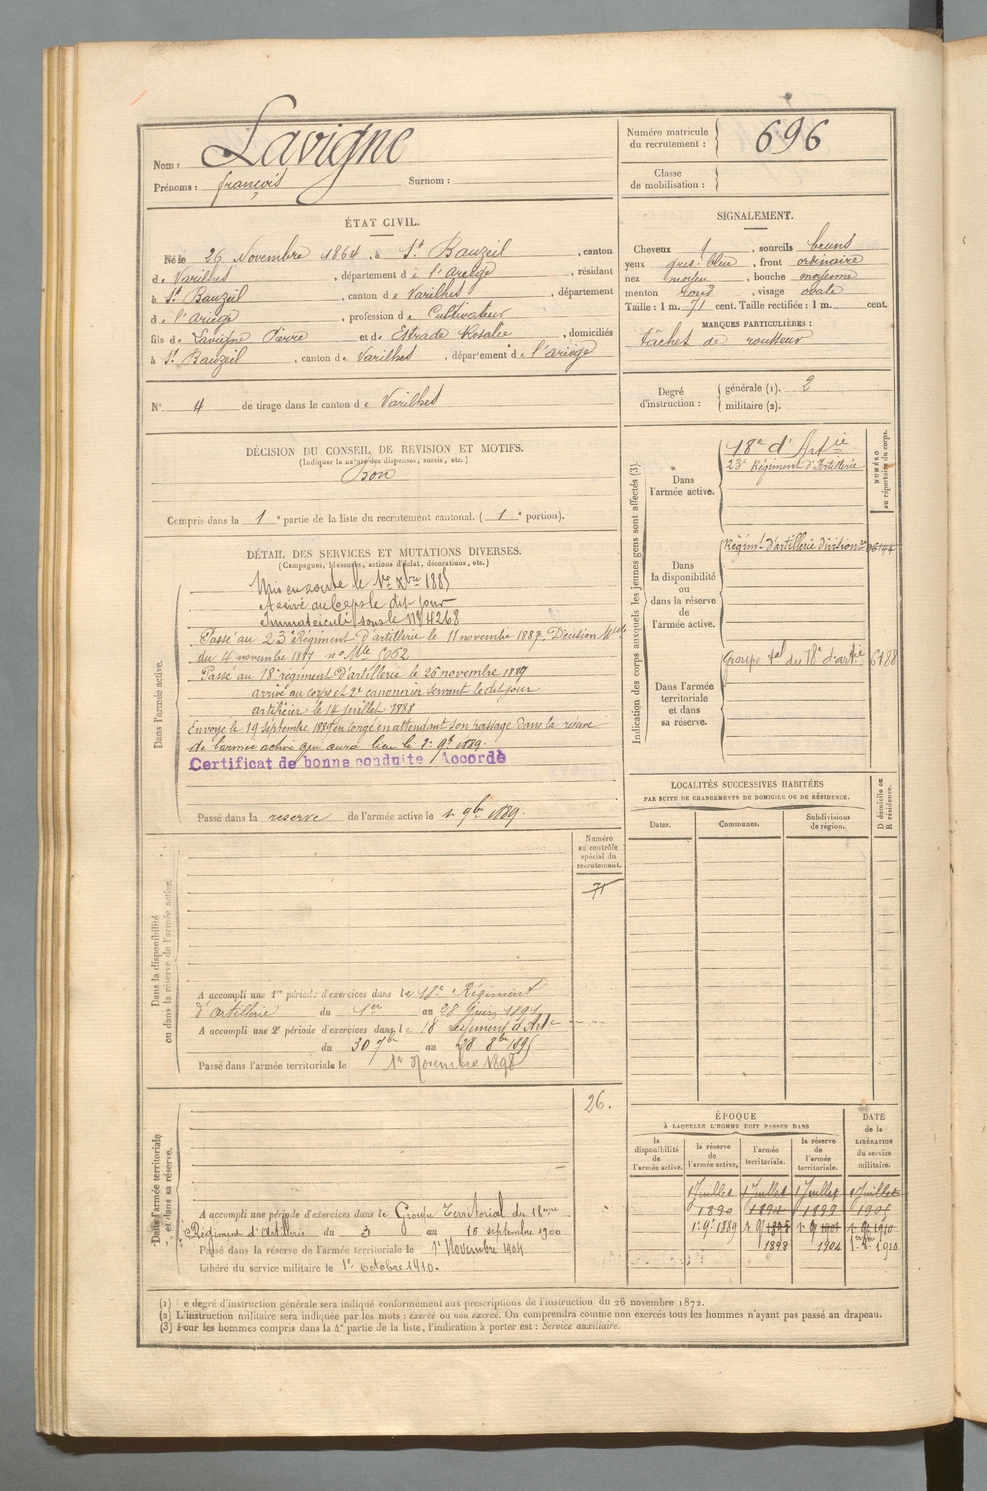 Nom : Lavigne
Prénoms : françois Surnom :
Numéro matricule du recrutement : 696
Classe de mobilisation :
ÉTAT CIVIL.
Né le 26 Novembre 1864, à St Bauzeil, canton
de Varilhes, département de l'ariège, résidant
à St Bauzeil, canton de Varilhes, département
de l'ariège, profession de Cultivateur
fils de Lavigne Pierre et de Estrade Rosalie, domiciliés
à St Bauzeil, canton de Varilhes, département de l'ariège
N° 4 de tirage dans le canton de Varilhes
SIGNALEMENT.
Cheveux , sourcils bruns
yeux gris-bleu, front ordinaire
nez moyen, bouche moyenne
menton rond, visage ovale
Taille : 1 m. 71 cent. Taille rectifiée : 1 m. cent.
MARQUES PARTICULIÈRES :
tâches de rousseur
Degré d'instruction : générale (1). 2
militaire (2).
DÉCISION DU CONSEIL DE REVISION ET MOTIFS.
(Indiquer la nature des dispenses, sursis, etc.)
Bon
Compris dans la 1e partie de la liste du recrutement cantonal. (1e portion).
DÉTAIL DES SERVICES ET MUTATIONS DIVERSES.
(Campagnes, blessures, actions d'éclat, décorations, etc.)
Dans l'armée active.
Mis en route le 1er Xbre 1885
Arrivé au Corps le dit jour
Immatriculé sous le N° 4268
Passé au 23e Régiment d'artillerie le 11 novembre 1887. Décision Melle
du 4 novembre 1887 n° Mle 5062
Passé au 18e régiment d'artillerie le 26 novembre 1887
arrivé au corps et 2e canonnier servant le dit jour
artificier le 14 juillet 1888
Envoyé le 19 septembre 1889 en congé en attendant son passage dans la réserve
de l'armée active qui aura lieu le 1er 9bre 1889.
Certificat de bonne conduite Accordé
Passé dans la réserve de l'armée active le 1er 9bre 1889.
Indication des corps auxquels les jeunes gens sont affectés (3).
NUMÉRO au répertoire du corps.
Dans l'armée active.
18e d'Artie
23e Régiment d'Artillerie
Dans la disponibilité ou dans la réserve de l'armée active.
Régimt d'artillerie divisionre
Dans l'armée territoriale et dans sa réserve.
Groupe tal du 18e d'artie 6188
LOCALITÉS SUCCESSIVES HABITÉES
PAR SUITE DE CHANGEMENTS DE DOMICILE OU DE RÉSIDENCE.
Dates. Communes. Subdivisions de région. D domicile ou R résidence.
Dans la disponibilité ou dans la réserve de l'armée active.
Numéro au contrôle spécial du recrutement.
71
A accompli une 1re période d'exercices dans le 18e Régiment
d'artillerie du 1er au 28 Juin 1891
A accompli une 2e période d'exercices dans le 18 régiment d'Artie
du 30 7bre au 28 8bre 1895
Passé dans l'armée territoriale le 1er Novembre 1898
Dans l'armée territoriale et dans sa réserve.
26.
A accompli une période d'exercices dans le Groupe Territorial du 18eme
Régiment d'Artillerie du 3 au 16 septembre 1900
Passé dans la réserve de l'armée territoriale le 1er Novembre 1904
Libéré du service militaire le 1er octobre 1910.
ÉPOQUE
À LAQUELLE L'HOMME DOIT PASSER DANS
DATE de la LIBÉRATION du service militaire.
la disponibilité de l'armée active. la réserve de l'armée active. l'armée territoriale. la réserve de l'armée territoriale.
1 Juillet 1 Juillet 1 Juillet 1 Juillet
1890 1894 1899 1905
1er 9bre 1889 1er 9bre 1898 1er 9bre 1904 1er 9bre 1910
1898 1904 1910
(1) Le degré d'instruction générale sera indiqué conformément aux prescriptions de l'instruction du 26 novembre 1872.
(2) L'instruction militaire sera indiquée par les mots : exercé ou non exercé. On comprendra comme non exercés tous les hommes n'ayant pas passé au drapeau.
(3) Pour les hommes compris dans la 4e partie de la liste, l'indication à porter est : Service auxiliaire.